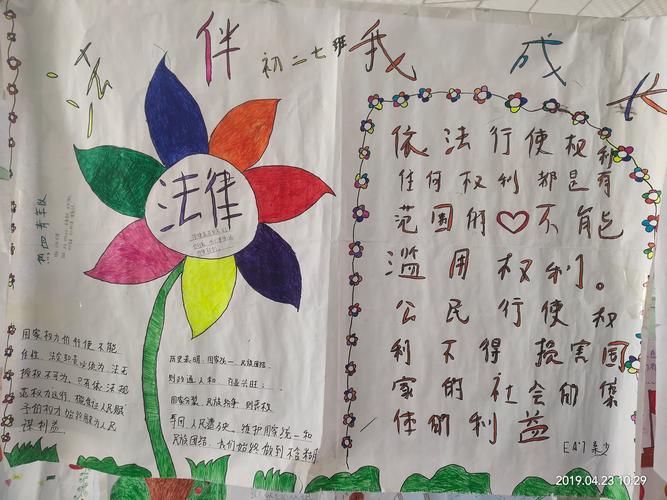 法 伴 我 成 长
初二七班
法律
国家权力的行使不能
任性，法定职责必须为，法无
授权不可为，只有依法规
范权力运行，
手的权才始终为人民
谋利益
历史表明：国家统一、民族团结
则政通人和、百业兴旺；
国家分裂、民族纷争，则丧权
辱国、人民遭殃。维护国家统一和
民族团结，我们始终做到不含糊
依法行使权利
任何权利都是有
范围的♡不能
滥用权利。
公民行使权
利不得损害国
家的社会的集
体的利益
2019.04.23 10:29